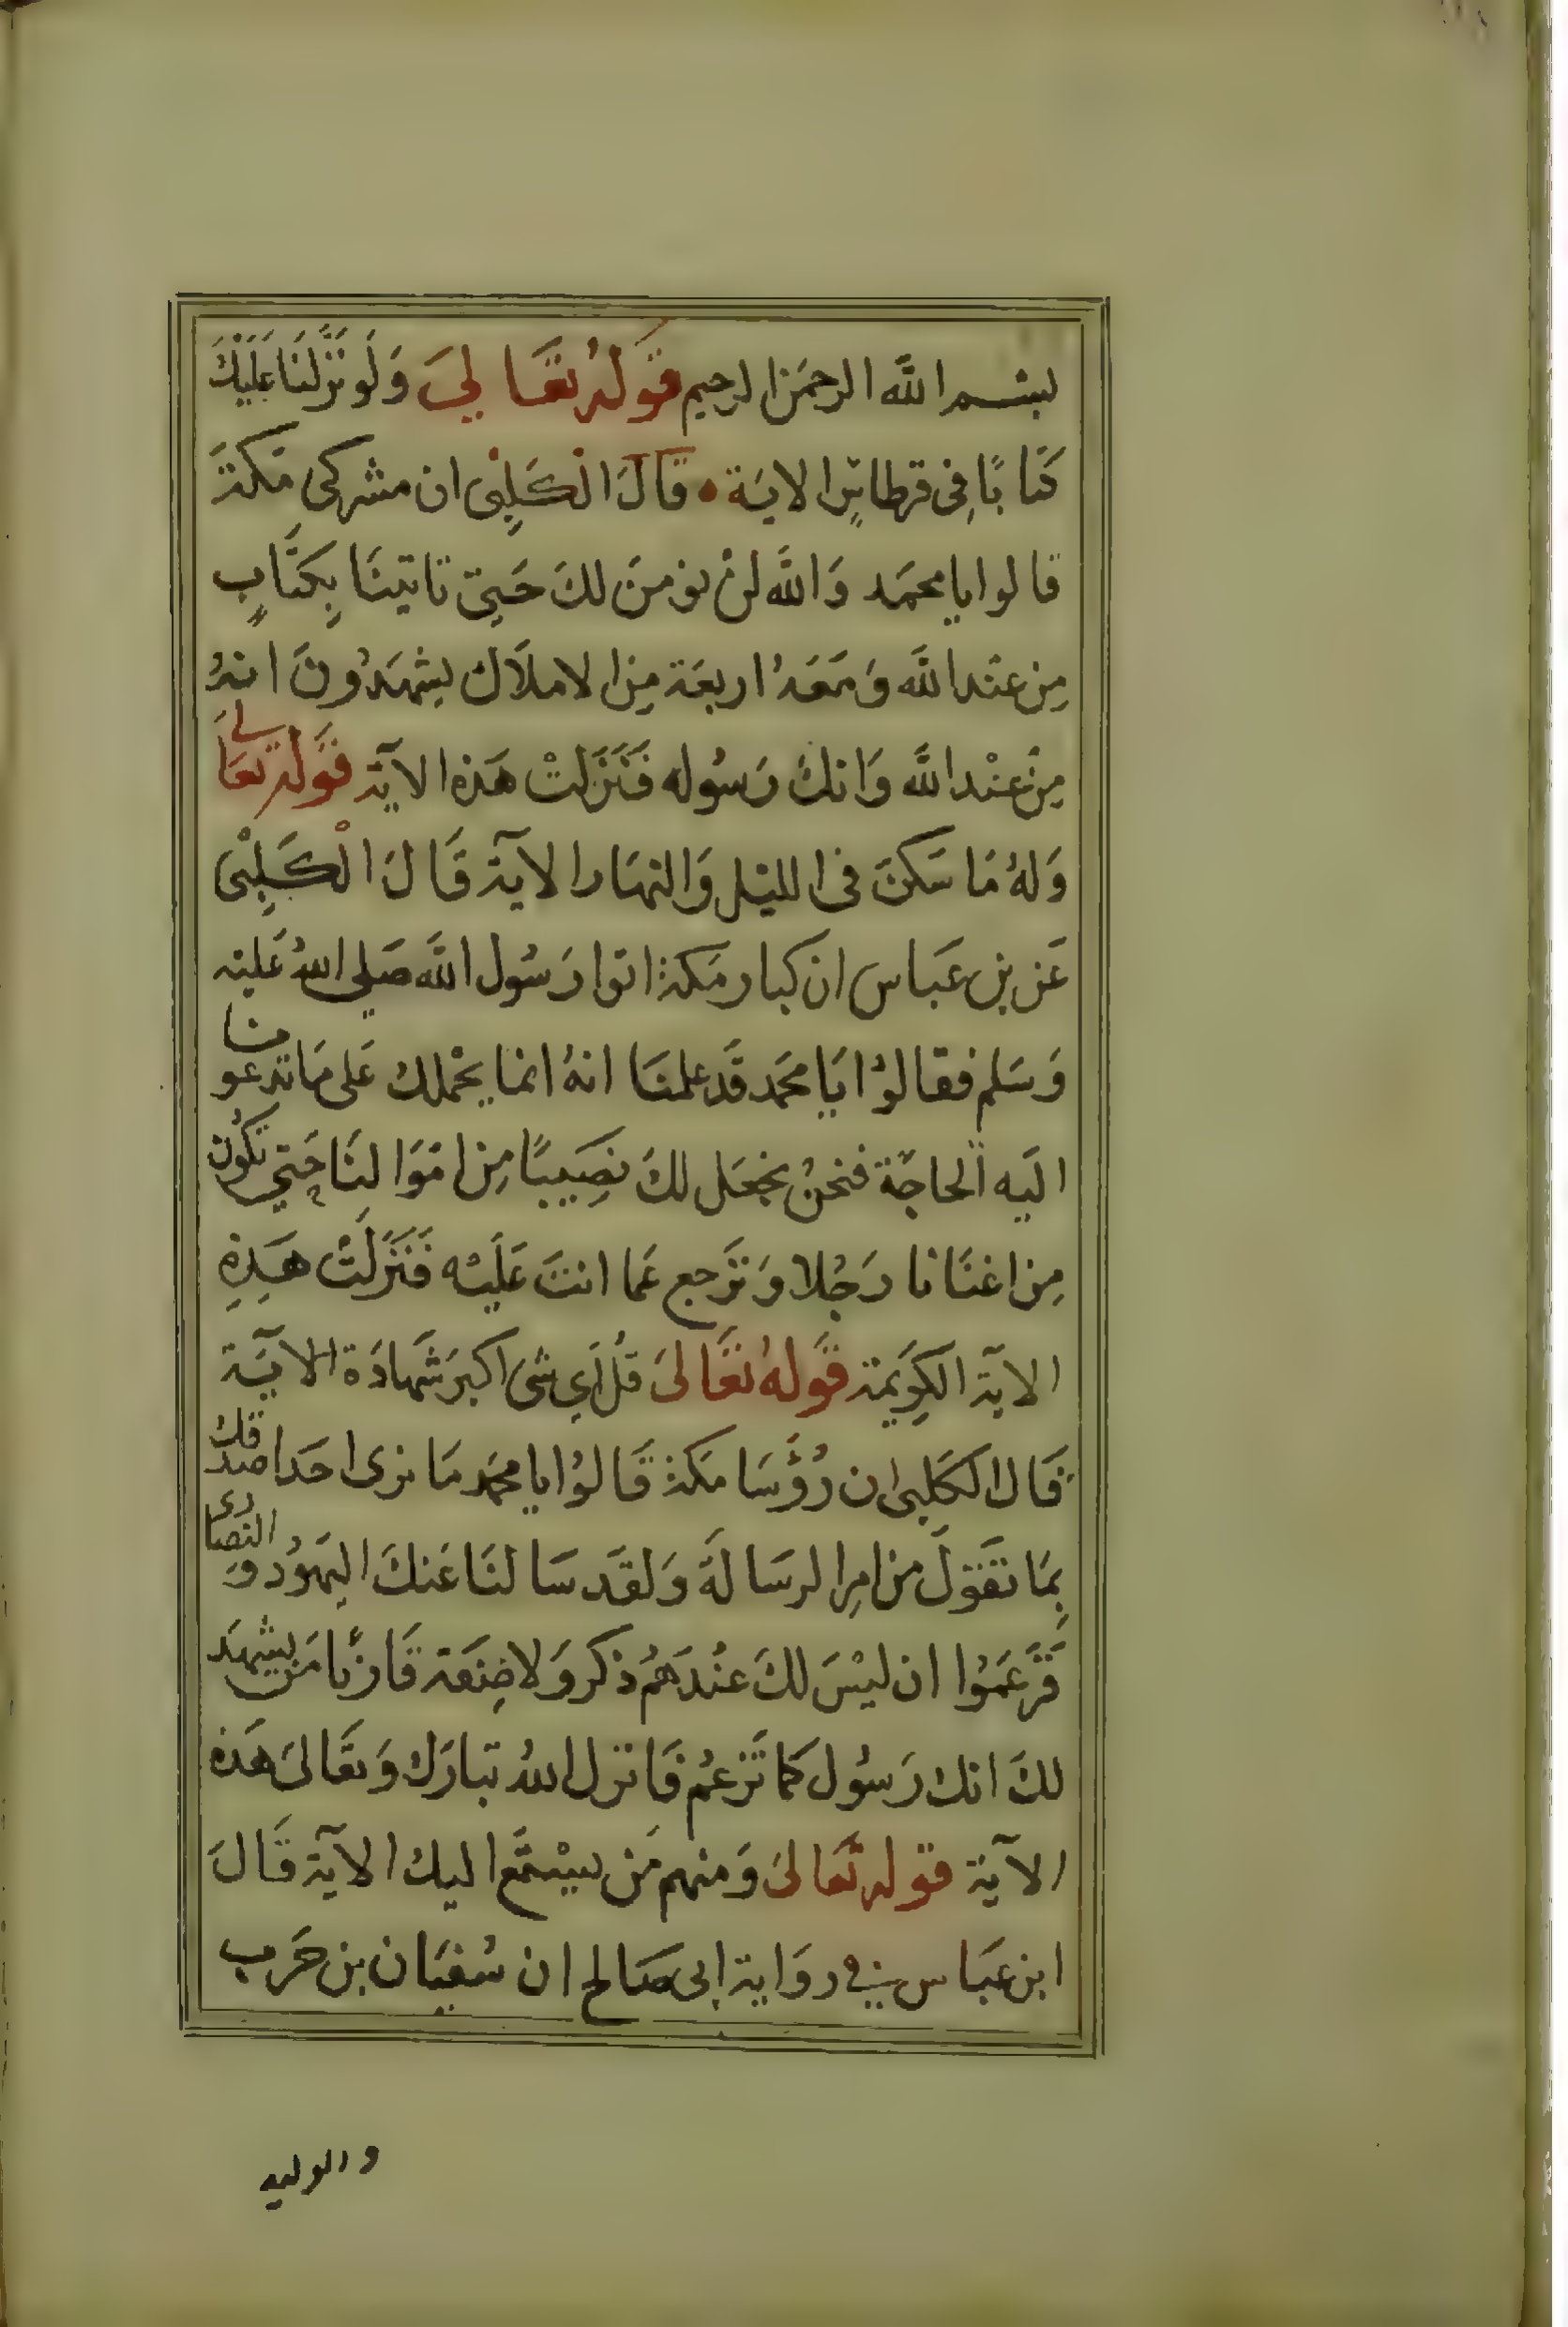 بسم الله الرحمن الرحيم قوله تعالى وَلَو نَزَّلنَا عَلَيْكَ
كتَابًا فِى قرطاسٍ الاية ۰ قالَ الكَلبِى ان مشركى مَكة
قالوا يا محمد وَالله لن نومنَ لكَ حَتى تاتينَا بِكتَابٍ
مِن عنْد الله وَمَعَهُ اربعَة مِن الاملاَك يشهَدُونَ انهُ
مِنْ عنْد الله وَانكَ رَسُوله فَنَزَلتْ هَذه الآية قوله تعَالى
وَلهُ مَا سَكنَ فى الليْل وَالنهَار الآية قَالَ الْكَلبِى
عَن بن عَباس ان كبار مَكة اتوا رَسُول الله صَلى اللهُ عَليْه
وَسَلم فقالوُا يَا محَمد قَد علمنَا انهُ انما يحْملك عَلى مَا تدعونا
اليَه الحاجَة فنحنُ نجعَل لكَ نصِيبًا مِن امْوَالنَا حَتي تكُون
مِن اغنَانا رَجُلا وَترَجع عَما انتَ عَليْه فَنَزَلَتْ هَذِهِ
الاية الكرِيمَة قَوله تعَالىَ قُل اَي شى اكبَر شَهادَة الايَة
قَال الكَلبى ان رُؤَسَا مَكة قَالوُا يا محمَد مَا نرى احَدا صدقك
بِمَا تقَول من امِر الرسَالَة وَلقَد سَالنَا عَنكَ اليَهوُد وَالنصارى
فَزَعَمُوا ان ليْسَ لكَ عنْدَهُم ذكر وَلا صِفَة فَارِنا مَن يشهَد
لكَ انك رَسُول كما تَزعُم فَانزل اللهُ تبارَك وَتعَالىَ هَذه
الآية قوله تعَالىَ وَمنهم مَن يسْتمع اليك الآية قَالَ
ابن عبَاس في روَاية ابى صَالح ان سُفيَان بن حَرب
والوليد